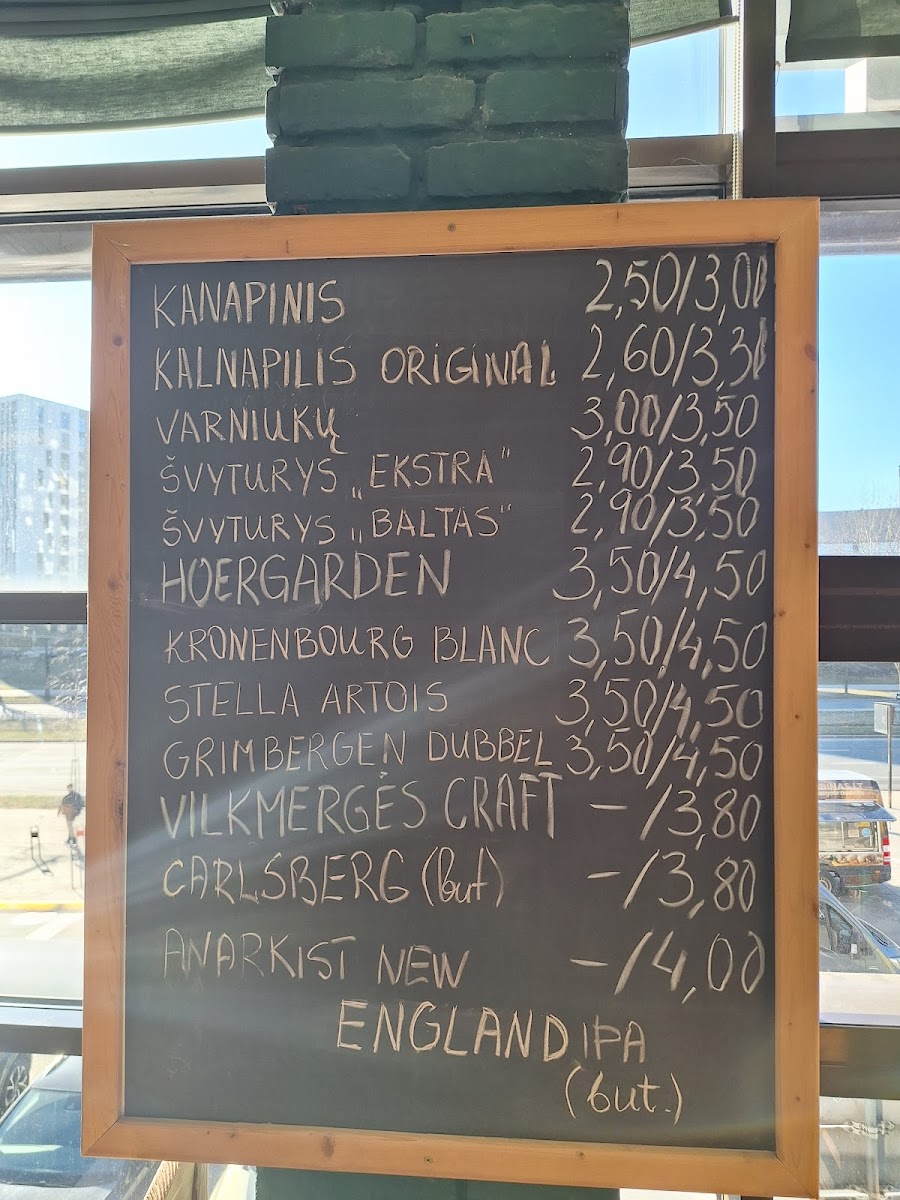 KANAPINIS 2,50/3,00
KALNAPILIS ORIGINAL 2,60/3,30
VARNIUKŲ 3,00/3,50
ŠVYTURYS „EKSTRA" 2,90/3,50
ŠVYTURYS „BALTAS" 2,90/3,50
HOERGARDEN 3,50/4,50
KRONENBOURG BLANC 3,50/4,50
STELLA ARTOIS 3,50/4,50
GRIMBERGEN DUBBEL 3,50/4,50
VILKMERGĖS CRAFT - /3,80
CARLSBERG (but) - /3,80
ANARKIST NEW - /4,00
ENGLAND IPA
(but.)